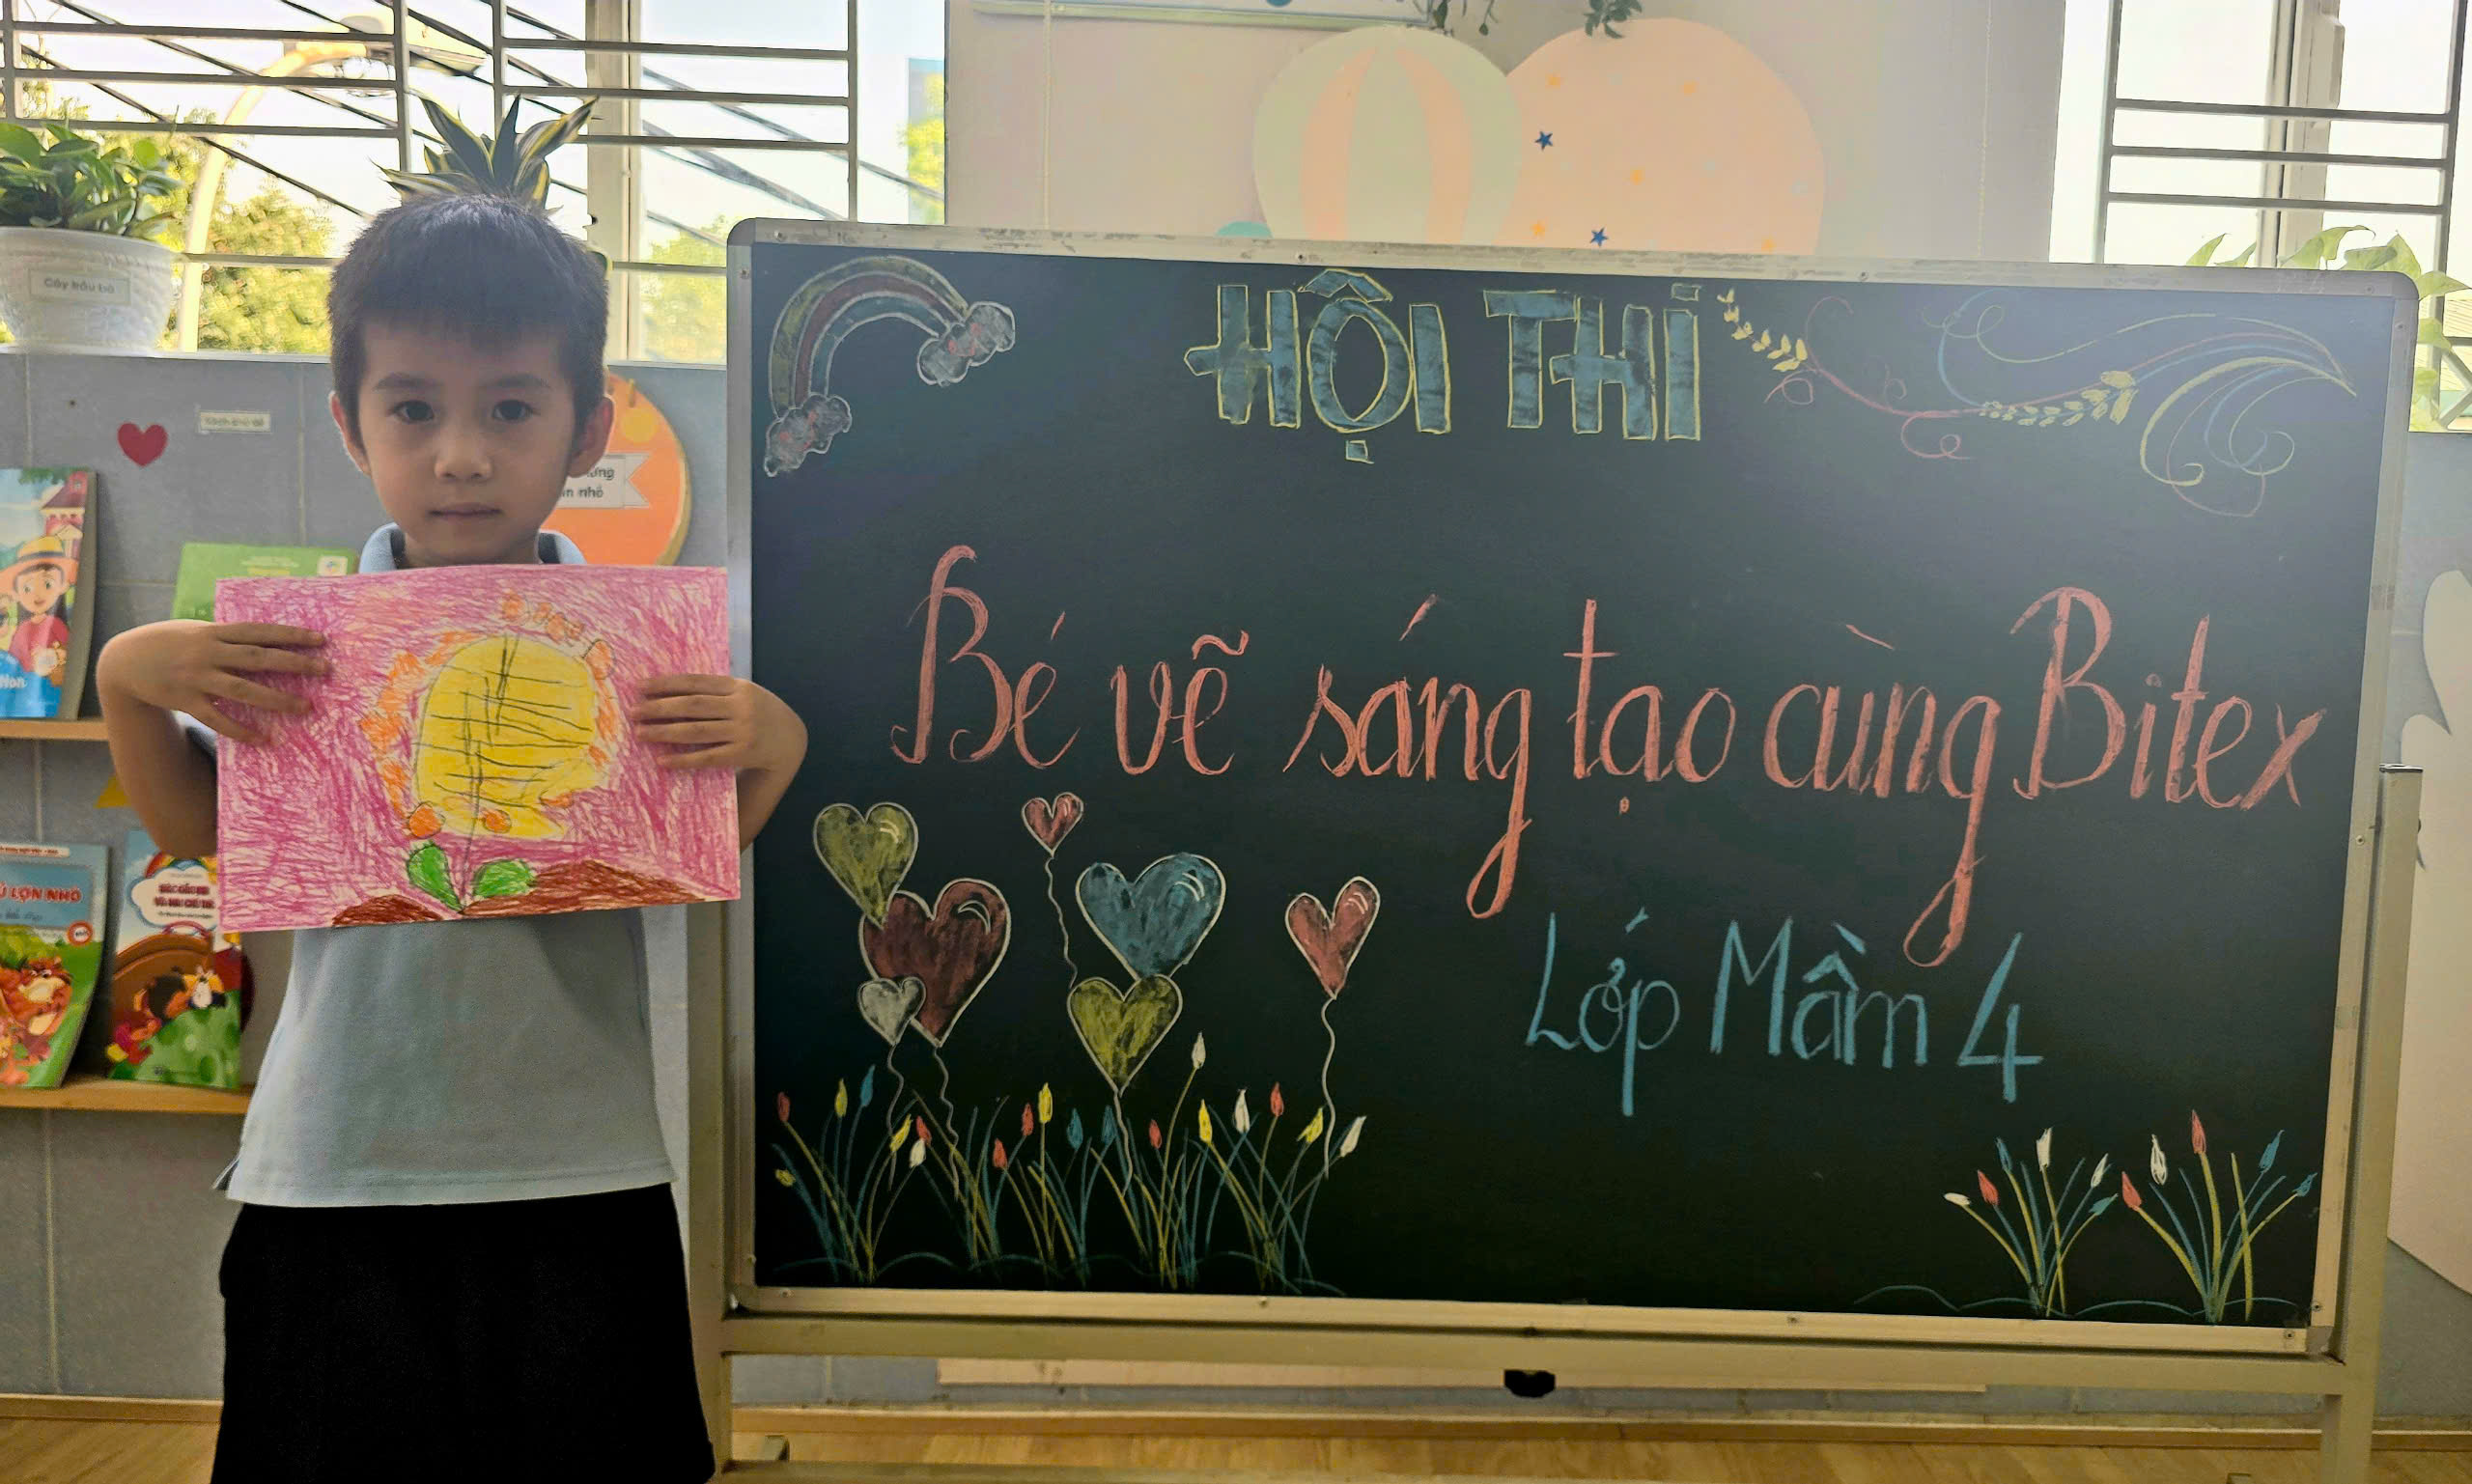 HỘI THI
Bé vẽ sáng tạo cùng Bitex
Lớp Mầm 4
Cây trầu bà
n nhỏ
LỢN NHỎ
Non